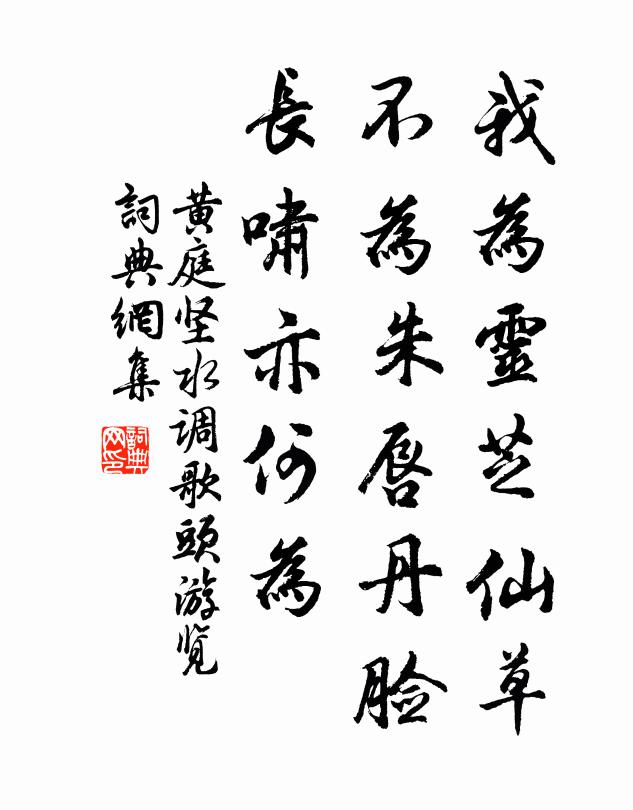 我為靈芝仙草
不為朱唇丹脸
長嘯亦何為
黄庭坚水调歌頭游览
詞典網集
詞典
网印